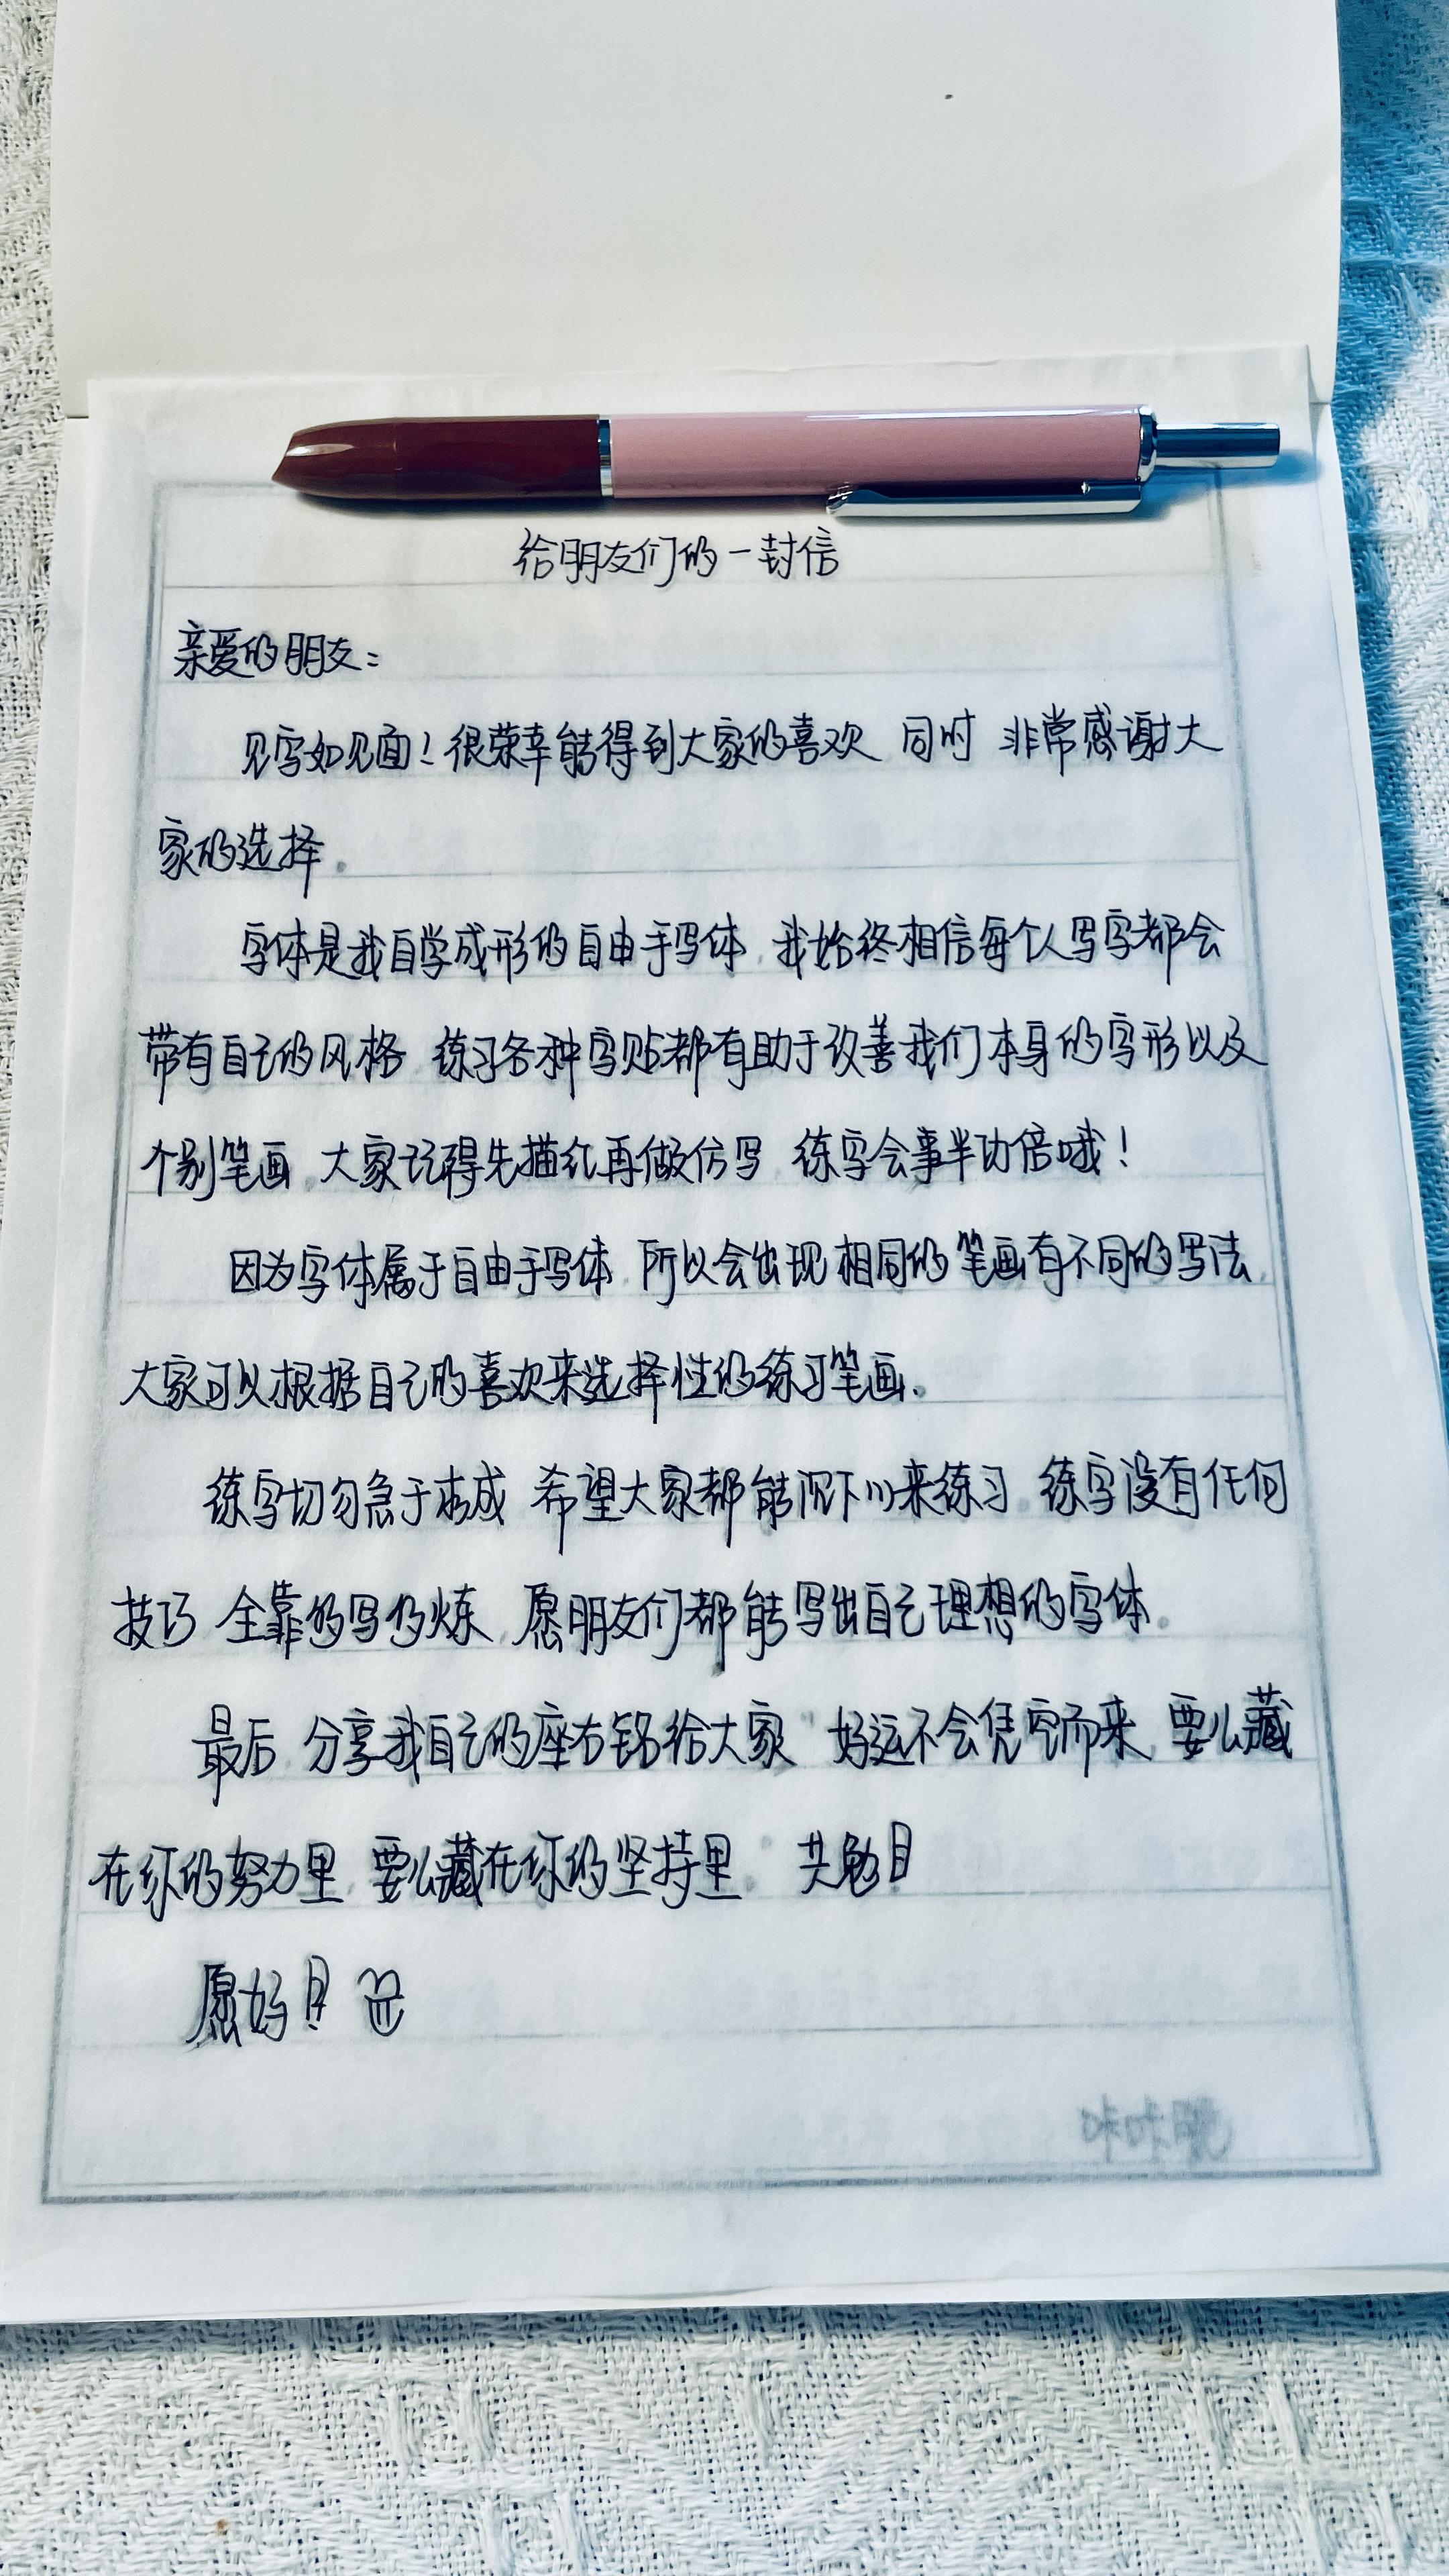 给朋友们的一封信
亲爱的朋友：
见字如见面！很荣幸能得到大家的喜欢 同时 非常感谢大
家的选择。
字体是我自学成形的自由手写体 我始终相信每个人写字都会
带有自己的风格 练习各种字贴都有助于改善我们本身的字形以及
个别笔画 大家记得先描红再做仿写 练字会事半功倍哦！
因为字体属于自由手写体 所以会出现相同的笔画有不同的写法
大家可以根据自己的喜欢来选择性的练习笔画。
练字切勿急于求成 希望大家都能沉下心来练习 练字没有任何
技巧 全靠多写多炼 愿朋友们都能写出自己理想的字体。
最后 分享我自己的座右铭给大家 好运不会凭空而来 要么藏
在你的努力里 要么藏在你的坚持里。 共勉！
愿好！